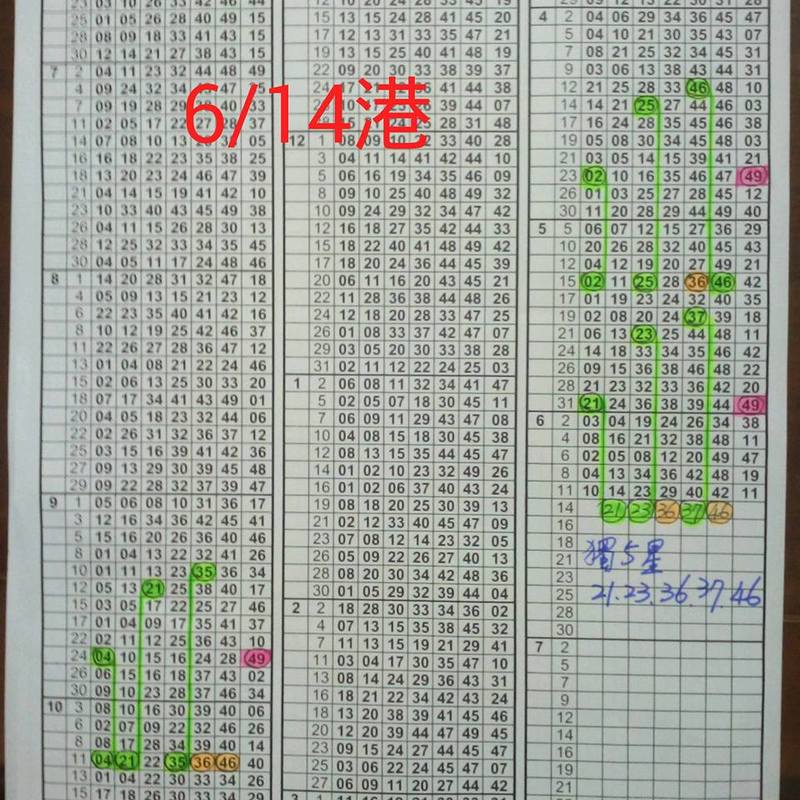 6/14港
25 01 05 26 28 40 49 15
28 08 09 18 33 41 43 15
30 12 14 21 27 38 43 15
7 2 04 11 23 32 44 48 49
4 09 24 32 34
7 09 19 28 29 33
11 02 05 17 22 37
14 07 08 10 13 05
16 16 18 22 23 35 38 25
18 13 20 23 24 46 47 39
21 04 14 15 19 41 42 10
23 10 33 40 43 45 49 38
26 04 11 25 26 28 30 13
28 12 25 32 33 34 35 45
30 04 05 11 17 24 48 46
8 1 14 20 28 31 32 47 18
4 05 09 13 15 21 23 12
6 22 23 35 40 41 42 16
8 10 12 19 25 42 46 37
11 22 26 27 28 36 47 12
13 01 04 08 21 22 24 46
15 02 06 13 25 30 33 20
18 07 17 34 41 43 49 01
20 04 05 18 23 32 44 06
22 02 26 31 32 36 37 12
25 03 15 16 39 41 42 36
27 09 13 29 30 39 45 48
29 09 22 28 32 37 39 47
9 1 05 06 08 10 31 36 17
3 12 16 34 36 42 45 41
5 15 16 20 26 36 40 47
8 01 04 13 22 32 41 26
10 01 11 13 23 35 36 34
12 05 13 21 25 38 40 17
15 03 05 17 22 25 27 46
17 01 04 09 17 35 41 37
22 02 11 12 25 36 43 10
24 04 10 15 16 24 28 49
26 06 15 16 18 37 43 02
30 09 10 23 28 37 46 34
10 3 08 10 16 30 39 40 06
6 02 07 09 22 32 46 26
8 08 17 28 34 39 40 14
11 04 21 22 35 36 46 40
13 01 04 22 30 33 34 26
15 13 15 24 28 41 45 20
17 12 13 31 33 35 47 21
19 13 15 25 40 41 48 19
22 09 20 33 38 39 37
24 17 41 44 38
27 39 44 07
28 31 48
12 1 08 33 40 28
3 04 11 14 41 42 44 10
5 06 16 19 34 35 46 09
8 09 10 25 40 48 49 32
10 09 24 29 32 34 47 42
12 16 18 27 35 42 44 33
15 18 22 40 41 48 49 42
17 18 20 24 36 44 45 39
20 06 11 16 20 43 45 21
22 11 28 36 38 44 48 26
24 12 18 20 28 27 35
26 01 08 33 37 42 47 07
29 03 05 20 30 33 38 28
31 02 11 12 22 24 25 03
1 2 06 08 11 32 34 41 47
5 02 05 07 18 30 45 11
7 06 09 11 29 43 47 08
10 04 08 15 18 30 45 38
12 08 13 15 35 44 45 47
14 01 02 10 23 32 49 26
16 01 02 06 37 40 43 24
19 08 18 20 25 30 39 13
21 02 12 33 40 45 47 09
23 07 08 12 14 23 32 05
26 05 09 22 26 27 40 13
28 08 20 30 34 42 48 36
30 01 05 29 32 39 44 04
2 2 18 28 30 33 34 36 02
4 07 13 15 35 38 45 32
7 11 13 15 19 21 29 41
11 03 04 17 30 35 47 10
13 08 14 24 29 36 43 31
16 18 21 22 34 42 43 24
18 13 20 38 39 41 45 46
20 12 20 39 44 47 49 45
23 09 15 24 27 44 45 47
25 03 06 22 24 45 47 07
27 06 09 11 20 27 44 42
4 2 04 06 29 34 36 45 47
5 04 10 21 30 35 43 07
7 08 21 25 32 34 45 31
9 03 06 13 38 43 44 31
12 21 25 28 33 46 48 10
14 14 21 25 27 44 46 03
17 16 24 28 35 45 46 38
19 05 08 30 34 45 48 40
21 03 05 14 15 39 41 21
23 02 10 16 35 46 47 49
26 01 03 25 27 28 45 12
30 11 20 28 29 44 49 40
5 5 06 07 12 15 27 36 29
10 20 26 28 32 40 45 43
12 04 12 19 20 27 49 21
15 02 11 25 28 36 46 42
17 01 19 23 24 32 40 35
19 02 08 20 24 37 39 18
21 06 13 23 25 44 48 11
24 14 18 33 34 35 46 42
26 09 15 36 38 46 48 22
28 21 23 32 33 36 42 20
31 21 24 36 38 39 44 49
6 2 03 04 19 24 26 34 38
4 08 16 21 32 38 48 11
6 02 05 08 12 20 49 47
8 04 13 34 36 42 48 19
11 10 14 23 29 40 42 11
14 21 23 36 37 46
16
18
21
23
25
28
30
獨5星
21.23.36.37.46
7 2
5
7
9
12
14
16
19
21